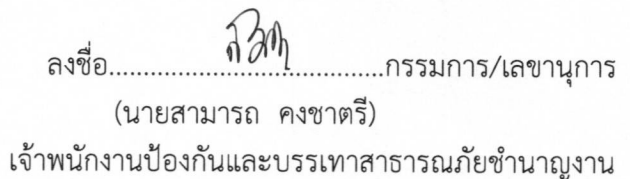 ลงชื่อ........................................กรรมการ/เลขานุการ
(นายสามารถ คงชาตรี)
เจ้าพนักงานป้องกันและบรรเทาสาธารณภัยชำนาญงาน